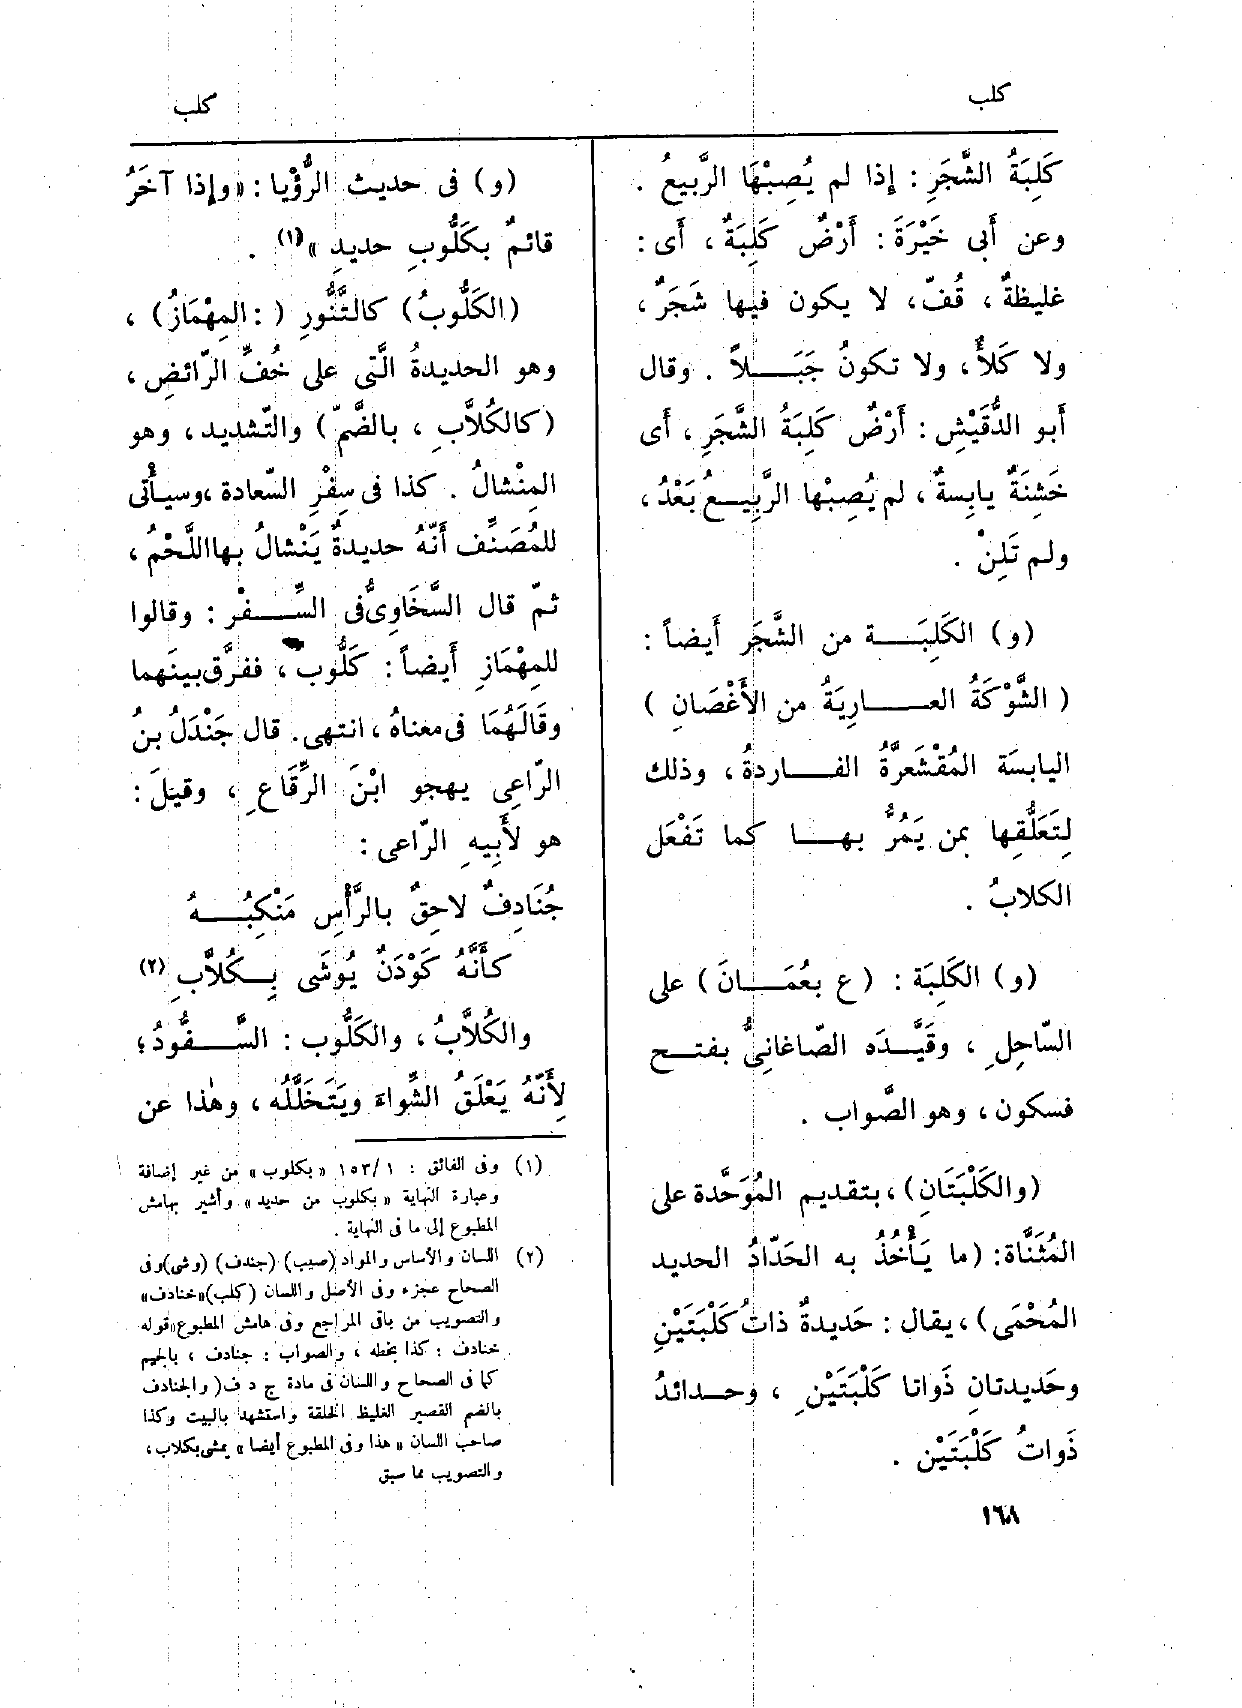 كلب
كلب
كَلِبَةُ الشَّجَرِ : إذا لم يُصِبْهَا الرَّبيعُ .
وعن أَبى خَيْرَةَ : أَرْضٌ كَلِبَةٌ ، أَى :
غليظةٌ ، قُفّ ، لا يكون فيها شَجَرٌ ،
ولا كَلأٌ ، ولا تكونُ جَبَلاً . وقال
أَبو الدُّقَيْشِ : أَرْضٌ كَلِبَةُ الشَّجَرِ ، أَى
خَشِنَةٌ يابِسةٌ ، لم يُصِبْها الرَّبِيعُ بَعْدُ ،
ولم تَلِنْ .
(و) الكَلِبَة من الشَّجَر أَيضاً :
( الشَّوْكَةُ العارِيَةُ من الأَغْصَانِ )
اليابسَة المُقْشَعرَّةُ الفاردةُ ، وذلك
لِتَعَلُّقِها بمن يَمُرُّ بها كما تَفْعَل
الكلابُ .
(و) الكَلِبَة : (ع بعُمَانَ) على
السّاحِلِ ، وقَيَّده الصّاغانِىُّ بفتح
فسكون ، وهو الصَّواب .
(والكَلْبَتَانِ) ، بتقديم المُوَحَّدة على
المُثنَّاة : (ما يَأْخُذُ به الحَدّادُ الحديد
المُحْمَى) ، يقال : حَديدةٌ ذاتُ كَلْبَتَيْنِ
وحَديدتانِ ذَواتا كَلْبَتَيْنِ ، وحدائدُ
ذَواتُ كَلْبَتَيْن .
(و) فى حديث الرُّؤْيا : «وإذا آخَرُ
قائمٌ بكَلُّوبِ حديدٍ » (١) .
(الكَلُّوبُ) كالتَّنُّورِ ( : المِهْمَازُ) ،
وهو الحديدةُ الَّتى على خُفِّ الرّائض ،
(كالكُلاَّبِ ، بالضَّمّ) والتّشديد ، وهو
المِنْشالُ . كذا فى سِفْرِ السّعادة ، وسيأْتى
للمُصَنِّف أَنّهُ حديدةٌ يَنْشالُ بها اللَّحْمُ ،
ثمّ قال السَّخَاوِىُّ فى السِّفْر : وقالوا
للمِهْمَازِ أَيضاً : كَلُّوب ، ففرَّق بينَهما
وقَالَهُمَا فى معناهُ ، انتهى . قال جَنْدَلُ بنُ
الرّاعِى يهجو ابْنَ الرِّقَاعِ ، وقيلَ :
هو لأَبِيهِ الرّاعى :
جُنَادِفٌ لاحِقٌ بالرَّأْسِ مَنْكِبُهُ
كأَنَّهُ كَوْدَنٌ يُوشَى بِكُلاَّبِ (٢)
والكُلاَّبُ ، والكَلُّوب : السَّفُّودُ ؛
لِأَنّهُ يَعْلَقُ الشِّواءَ ويَتَخَلَّلُه ، وهٰذا عن
(١) وفى الفائق : ١/١٥٣ «بكلوب» من غير إضافة
وعبارة النهاية «بكلوب من حديد» وأشير بهامش
المطبوع إلى ما فى النهاية .
(٢) اللسان والأساس والمواد (صيب) (جندف) (وشى) وفى
الصحاح عجزه وفى الأصل واللسان (كلب) «خنادف»
والتصويب من باقى المراجع وفى هامش المطبوع «قوله
خنادف : كذا بخطه ، والصواب : جنادف ، بالجيم
كما فى الصحاح واللسان فى مادة ج د ف ( والجنادف
بالضم القصير الغليظ الخلقة واستشهد بالبيت وكذا
صاحب اللسان » هذا وفى المطبوع أيضا «يمشى بكلاب ،
والتصويب مما سبق
١٦٨